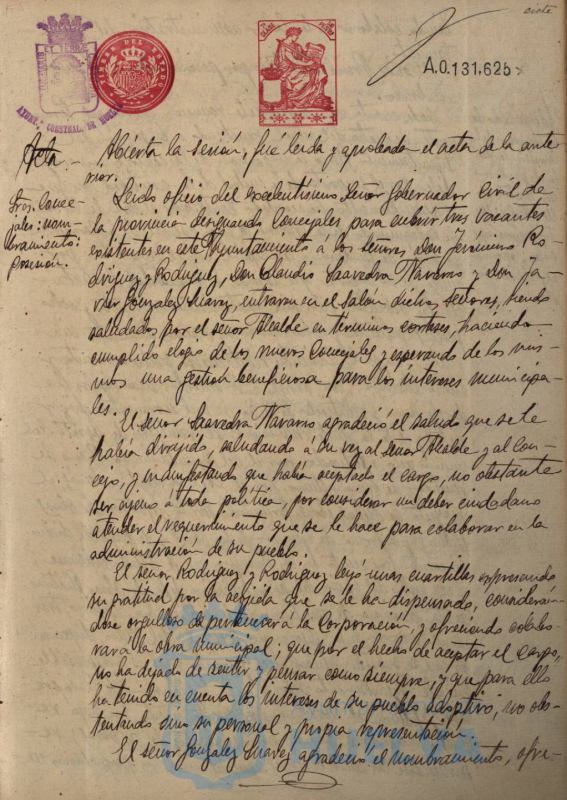 siete
CLASE OCTAVA
TIMBRE DEL ESTADO
A.0.131.625
AYUNT.º CONSTNAL. DE
Acta.- Abierta la sesión, fué leida y aprobada el acta de la ante-
rior.
Sres. Conce-
jales: nom-
bramiento:
posesión.
Leido oficio del excelentísimo Señor Gobernador Civil de
la provincia designando Concejales para cubrir tres vacantes
existentes en este Ayuntamiento á los señores Don Jerónimo Ro-
driguez y Rodriguez, Don Claudio Saavedra Navarro y Don Ja-
vier Gonzalez Suarez, entraron en el salón dichos señores, siendo
saludados por el señor Alcalde en términos corteses, haciendo
cumplido elogio de los nuevos Concejales y esperando de los mis-
mos una gestión beneficiosa para los intereses municipa-
les.
El señor Saavedra Navarro agradeció el saludo que se le
había dirijido, saludando á su vez al señor Alcalde y al con-
cejo, y manifestando que había aceptado el cargo, no obstante
ser ajeno a toda política, por considerar un deber ciudadano
atender el requerimiento que se le hace para colaborar en la
administración de su pueblo.
El señor Rodriguez y Rodriguez leyó unas cuartillas expresando
su gratitud por la acojida que se le ha dispensado, considerán-
dose orgulloso de pertenecer á la Corporación, y ofreciendo colabo-
rar á la obra municipal; que por el hecho de aceptar el cargo,
no ha dejado de sentir y pensar como siempre, y que para ello
ha tenido en cuenta los intereses de su pueblo adoptivo, no os-
tentando sino su personal y propia representación.
El señor Gonzalez Suarez agradeció el nombramiento, ofre-